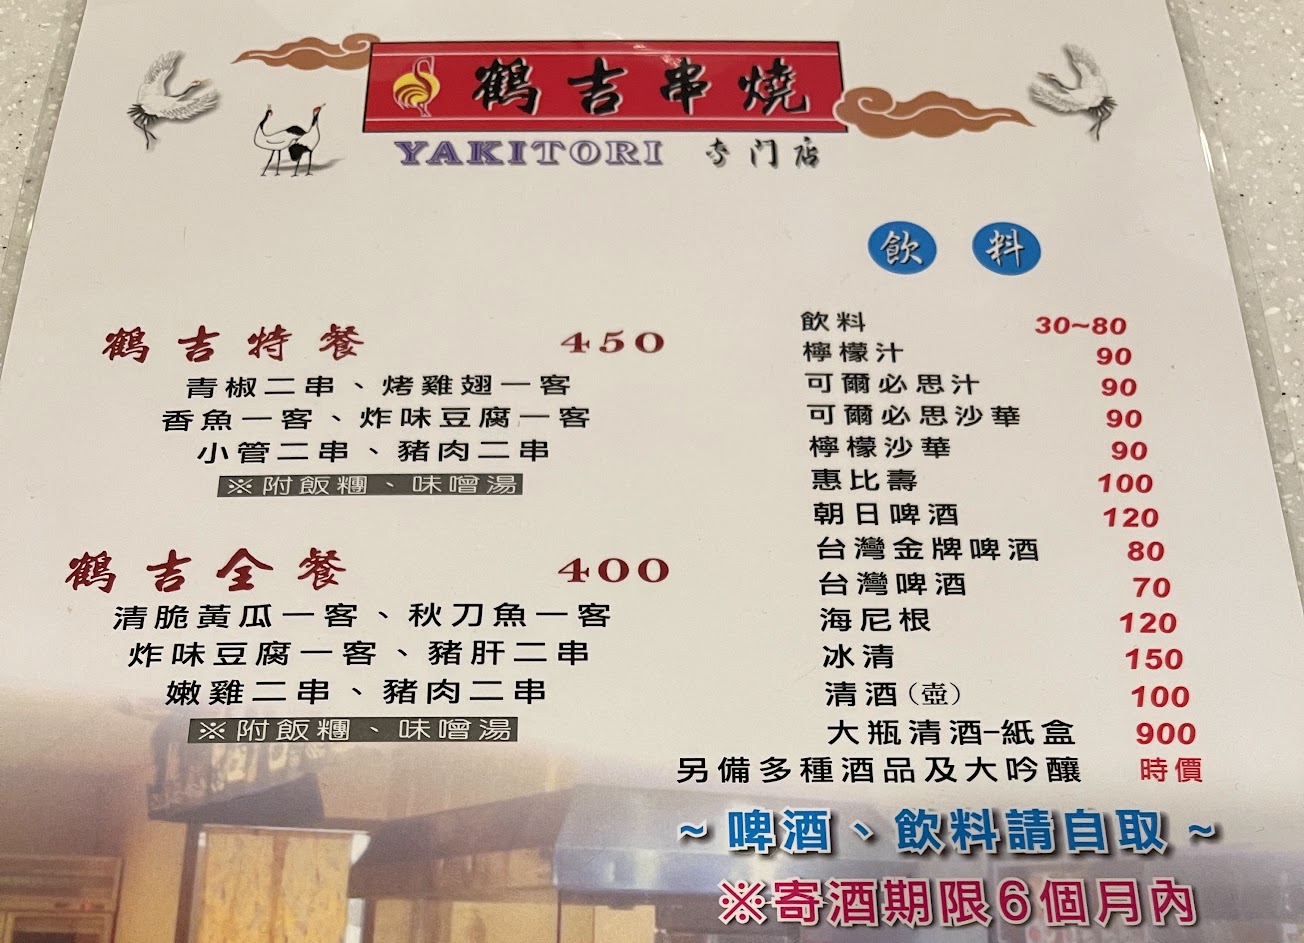 鶴吉串燒
YAKITORI 专门店
鶴吉特餐 450
青椒二串、烤雞翅一客
香魚一客、炸味豆腐一客
小管二串、豬肉二串
※附飯糰、味噌湯
鶴吉全餐 400
清脆黃瓜一客、秋刀魚一客
炸味豆腐一客、豬肝二串
嫩雞二串、豬肉二串
※附飯糰、味噌湯
飲料
飲料 30~80
檸檬汁 90
可爾必思汁 90
可爾必思沙華 90
檸檬沙華 90
惠比壽 100
朝日啤酒 120
台灣金牌啤酒 80
台灣啤酒 70
海尼根 120
冰清 150
清酒(壺) 100
大瓶清酒-紙盒 900
另備多種酒品及大吟釀 時價
~ 啤酒、飲料請自取 ~
※寄酒期限6個月內